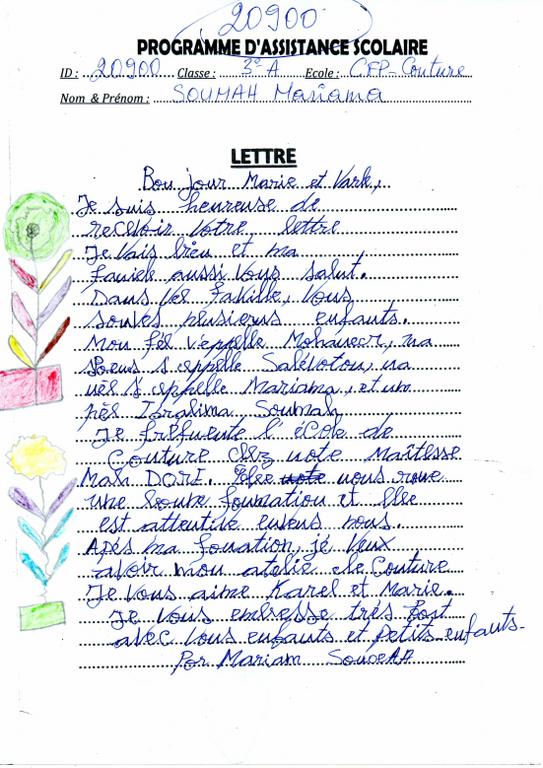 20900
PROGRAMME D'ASSISTANCE SCOLAIRE
ID : 20900 Classe : 3e A Ecole : CFP-Couture
Nom & Prénom : SOUMAH Mariama
LETTRE
Bon jour Marie et Vark,
Je suis heureuse de
recevoir votre, lettre
Je Vais bien et ma
Famiel aussi Vous salut.
Dans Vel Fakille, Vous
somes plusieurs enfants.
Mon fél s'eppelle Mohameor, ma
Soeus s'appelle Salévotou, ma
mèl s'appelle Mariama, et um
pèl Ibralima Soumah
Je fréfuente l' école de
Couture chez note Maîtesse
Mala DORI. Elle note nous roue
une bonne foumation et Elle
est attentive envens nous.
Apés ma fouation, jé Veux
avoir mon atelié de Couture
Je vous aime Karel et Marie.
Je Vous embesse très fort
avec Vous enfants et petits-enfants.
Por Mariam